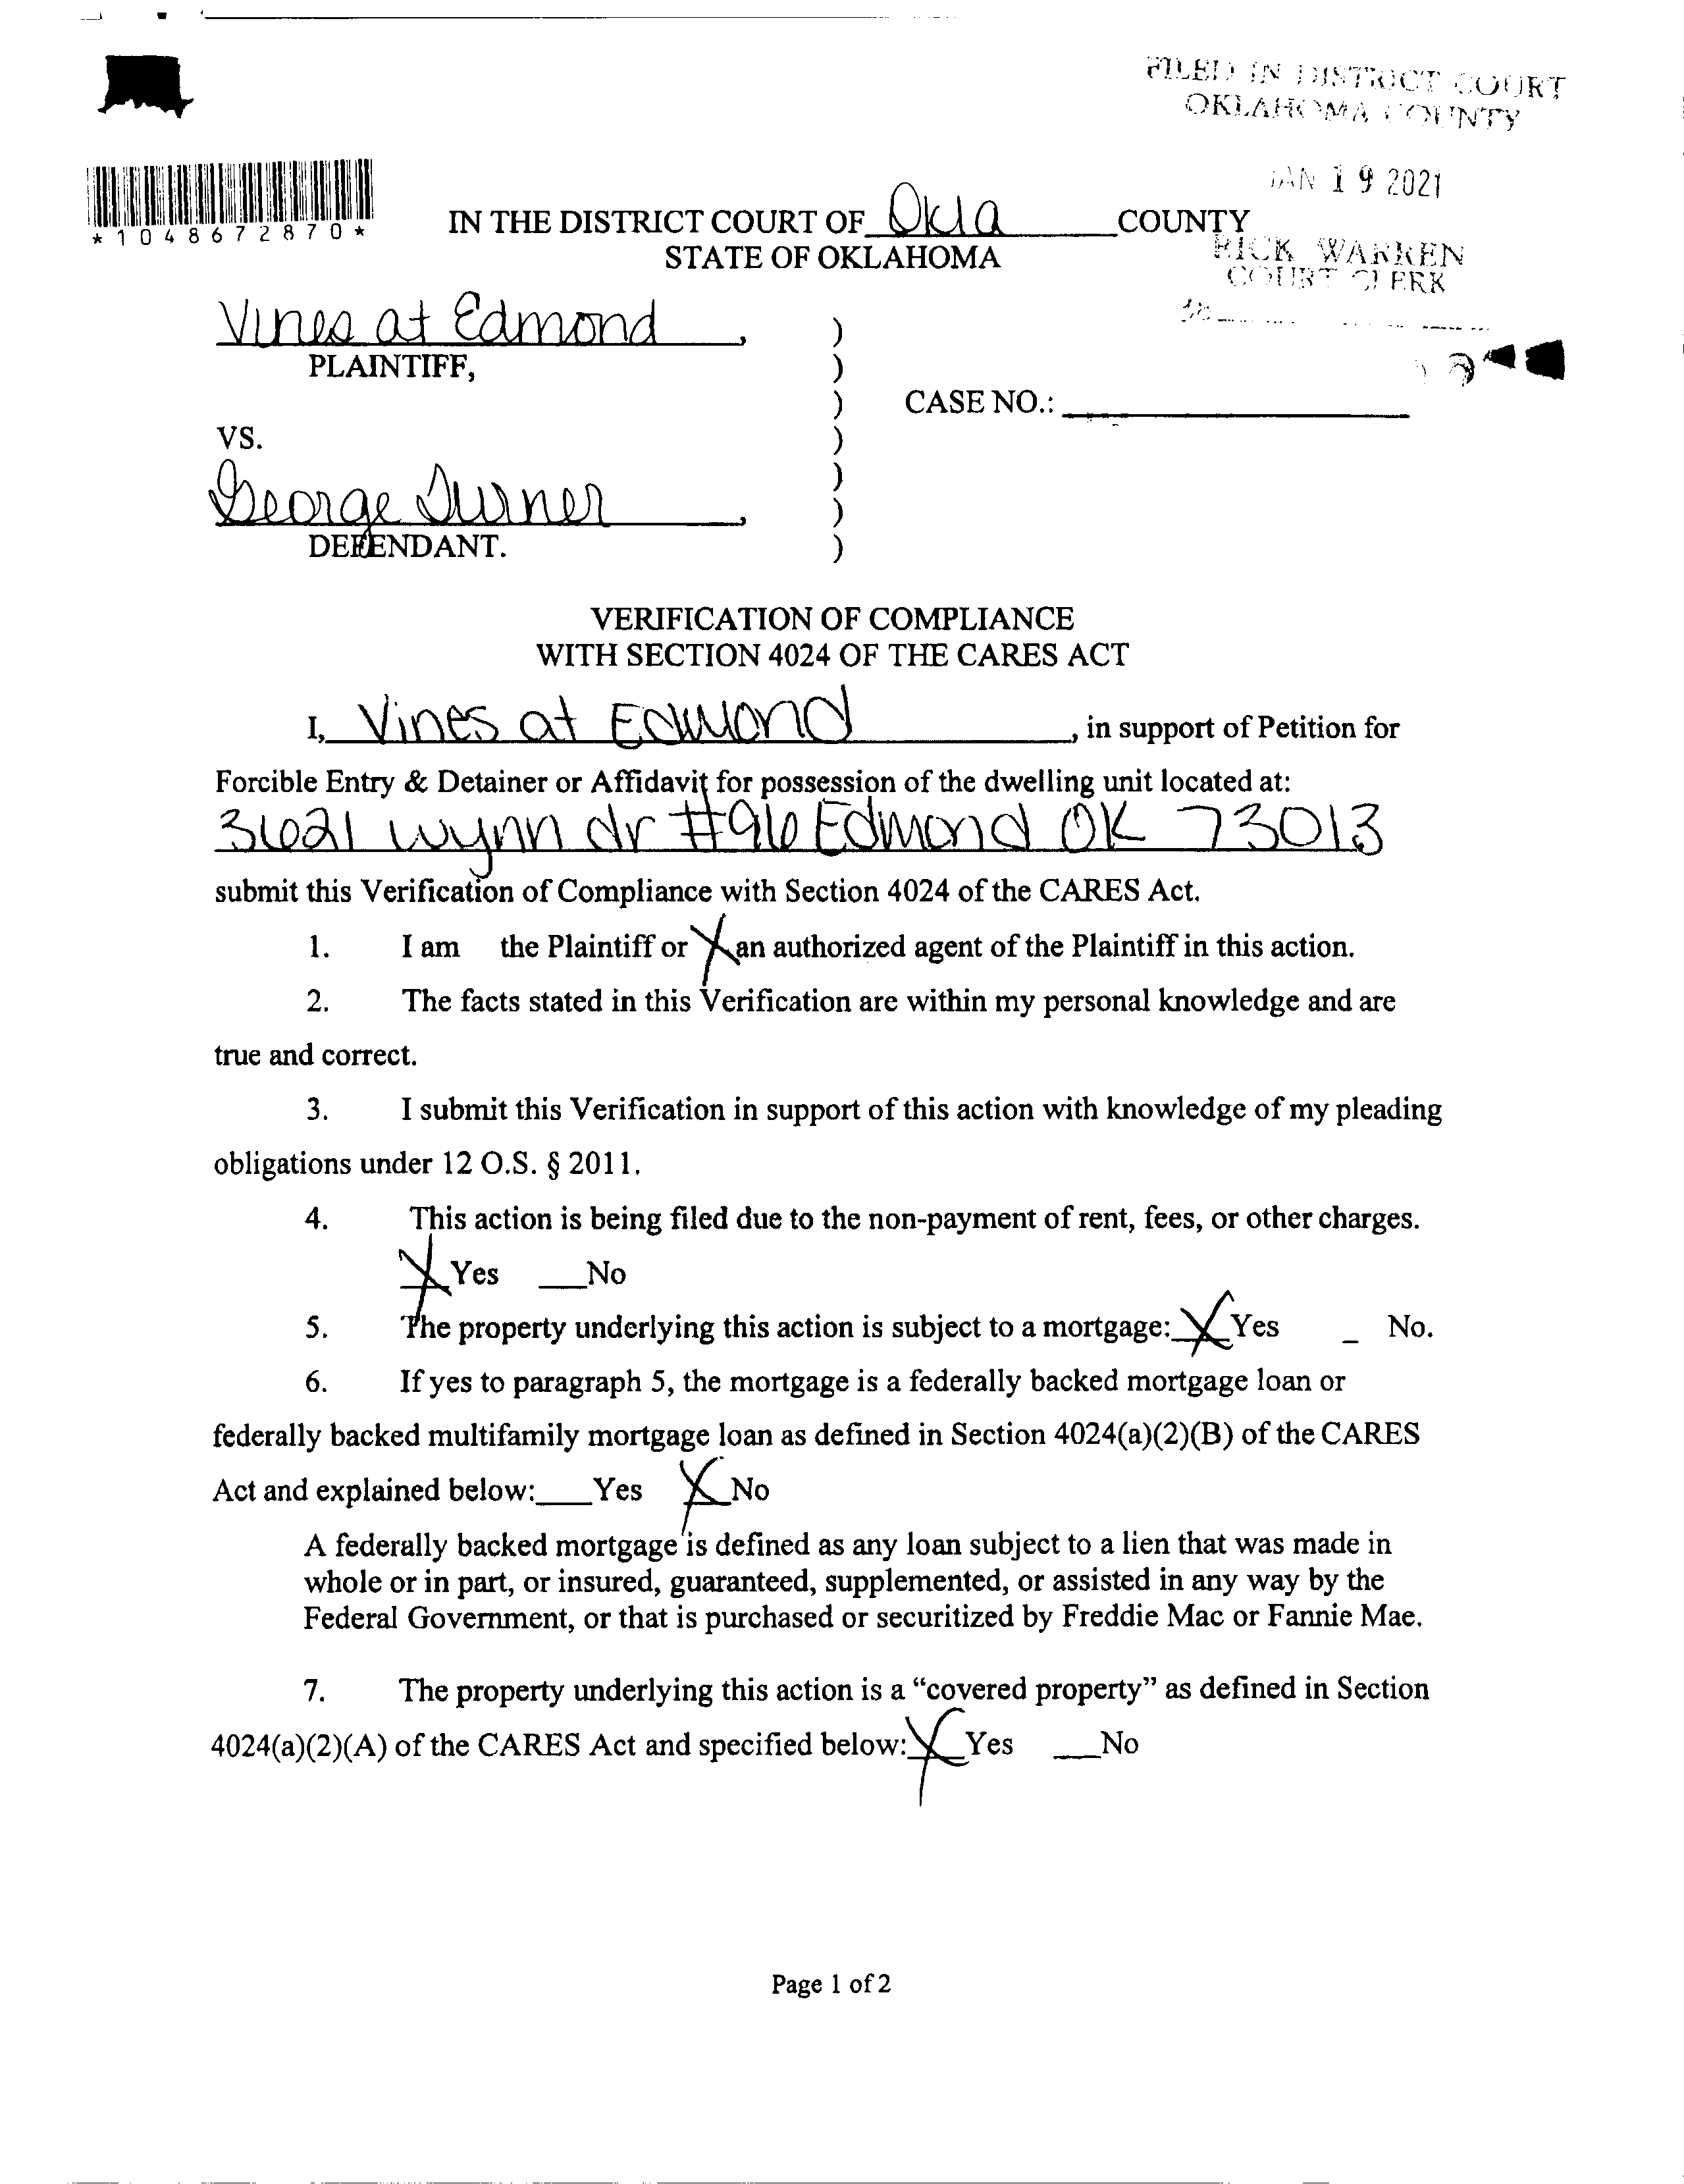 FILED IN DISTRICT COURT
OKLAHOMA COUNTY
JAN 19 2021
*1048672870*
IN THE DISTRICT COURT OF Okla COUNTY
STATE OF OKLAHOMA
RICK WARREN
COURT CLERK
Vines at Edmond,
PLAINTIFF,
CASE NO.:
VS.
George Turner,
DEFENDANT.
)
)
)
)
)
)
)
VERIFICATION OF COMPLIANCE
WITH SECTION 4024 OF THE CARES ACT
I, Vines at Edmond, in support of Petition for
Forcible Entry & Detainer or Affidavit for possession of the dwelling unit located at:
3621 wynn dr #96 Edmond OK 73013
submit this Verification of Compliance with Section 4024 of the CARES Act.
1. I am the Plaintiff or X an authorized agent of the Plaintiff in this action.
2. The facts stated in this Verification are within my personal knowledge and are
true and correct.
3. I submit this Verification in support of this action with knowledge of my pleading
obligations under 12 O.S. § 2011.
4. This action is being filed due to the non-payment of rent, fees, or other charges.
X Yes ___No
5. The property underlying this action is subject to a mortgage: X Yes _ No.
6. If yes to paragraph 5, the mortgage is a federally backed mortgage loan or
federally backed multifamily mortgage loan as defined in Section 4024(a)(2)(B) of the CARES
Act and explained below:___Yes X No
A federally backed mortgage is defined as any loan subject to a lien that was made in
whole or in part, or insured, guaranteed, supplemented, or assisted in any way by the
Federal Government, or that is purchased or securitized by Freddie Mac or Fannie Mae.
7. The property underlying this action is a “covered property” as defined in Section
4024(a)(2)(A) of the CARES Act and specified below: X Yes ___No
Page 1 of 2